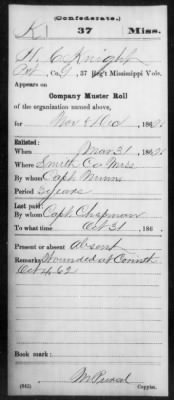 (Confederate.)
K 37 Miss.
H. C. Knight
Pvt, Co. , 37 Reg't Mississippi Vols.
Appears on
Company Muster Roll
of the organization named above,
for Nov & Dec, 1862.
Enlisted:
When Mar 31, 1862.
Where Smith Co Miss
By whom Capt.
Period 3 years
Last paid:
By whom Capt. Chapman
To what time Oct 31, 186 .
Present or absent Absent
Remarks: Wounded at Corinth
Oct 4 62
Book mark:
(642)
Copyist.